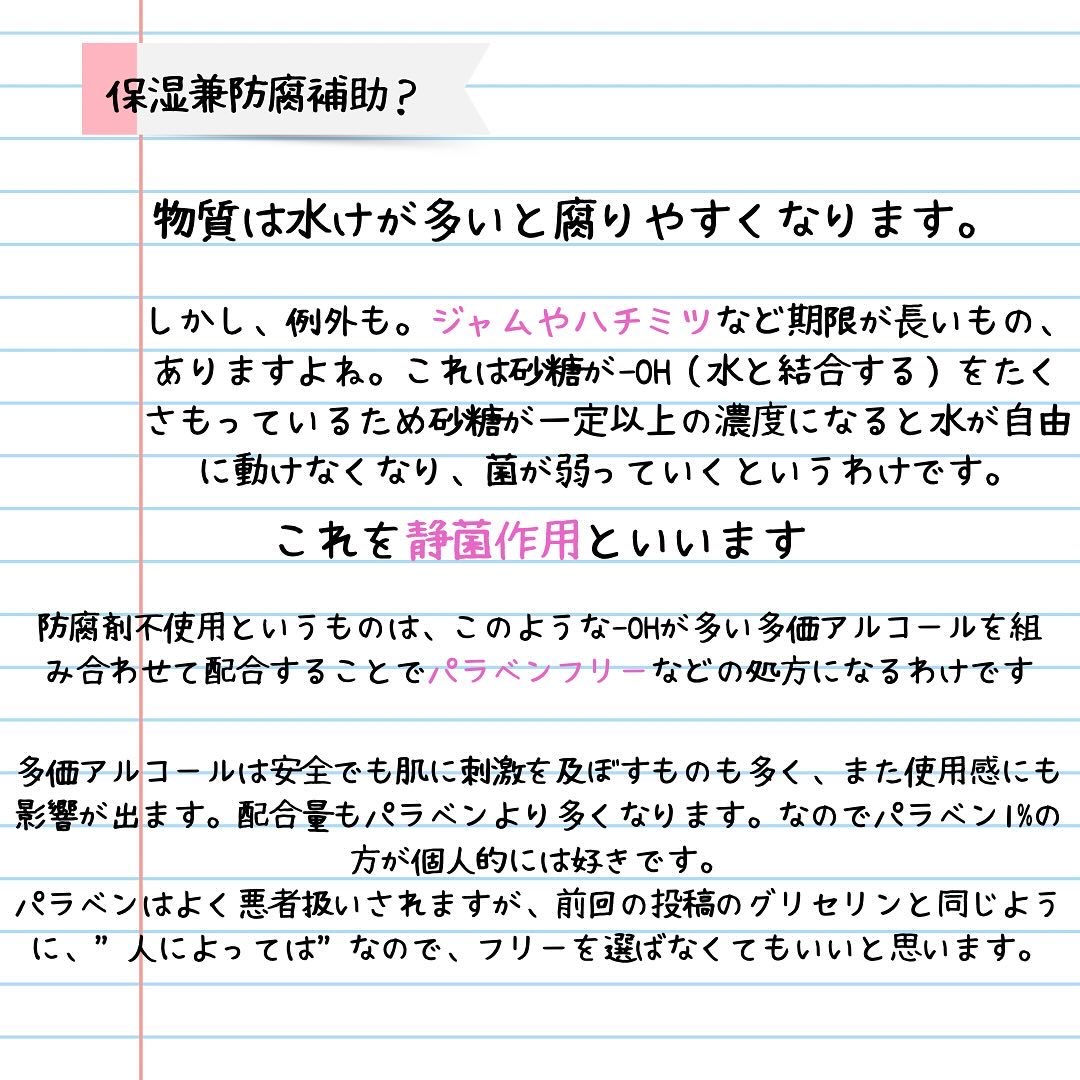 保湿兼防腐補助?
物質は水けが多いと腐りやすくなります。
しかし、例外も。ジャムやハチミツなど期限が長いもの、
ありますよね。これは砂糖が-OH(水と結合する)をたく
さもっているため砂糖が一定以上の濃度になると水が自由
に動けなくなり、菌が弱っていくというわけです。
これを静菌作用といいます
防腐剤不使用というものは、このような-OHが多い多価アルコールを組
み合わせて配合することでパラベンフリーなどの処方になるわけです
多価アルコールは安全でも肌に刺激を及ぼすものも多く、また使用感にも
影響が出ます。配合量もパラベンより多くなります。なのでパラベン1%の
方が個人的には好きです。
パラベンはよく悪者扱いされますが、前回の投稿のグリセリンと同じよう
に、”人によっては”なので、フリーを選ばなくてもいいと思います。